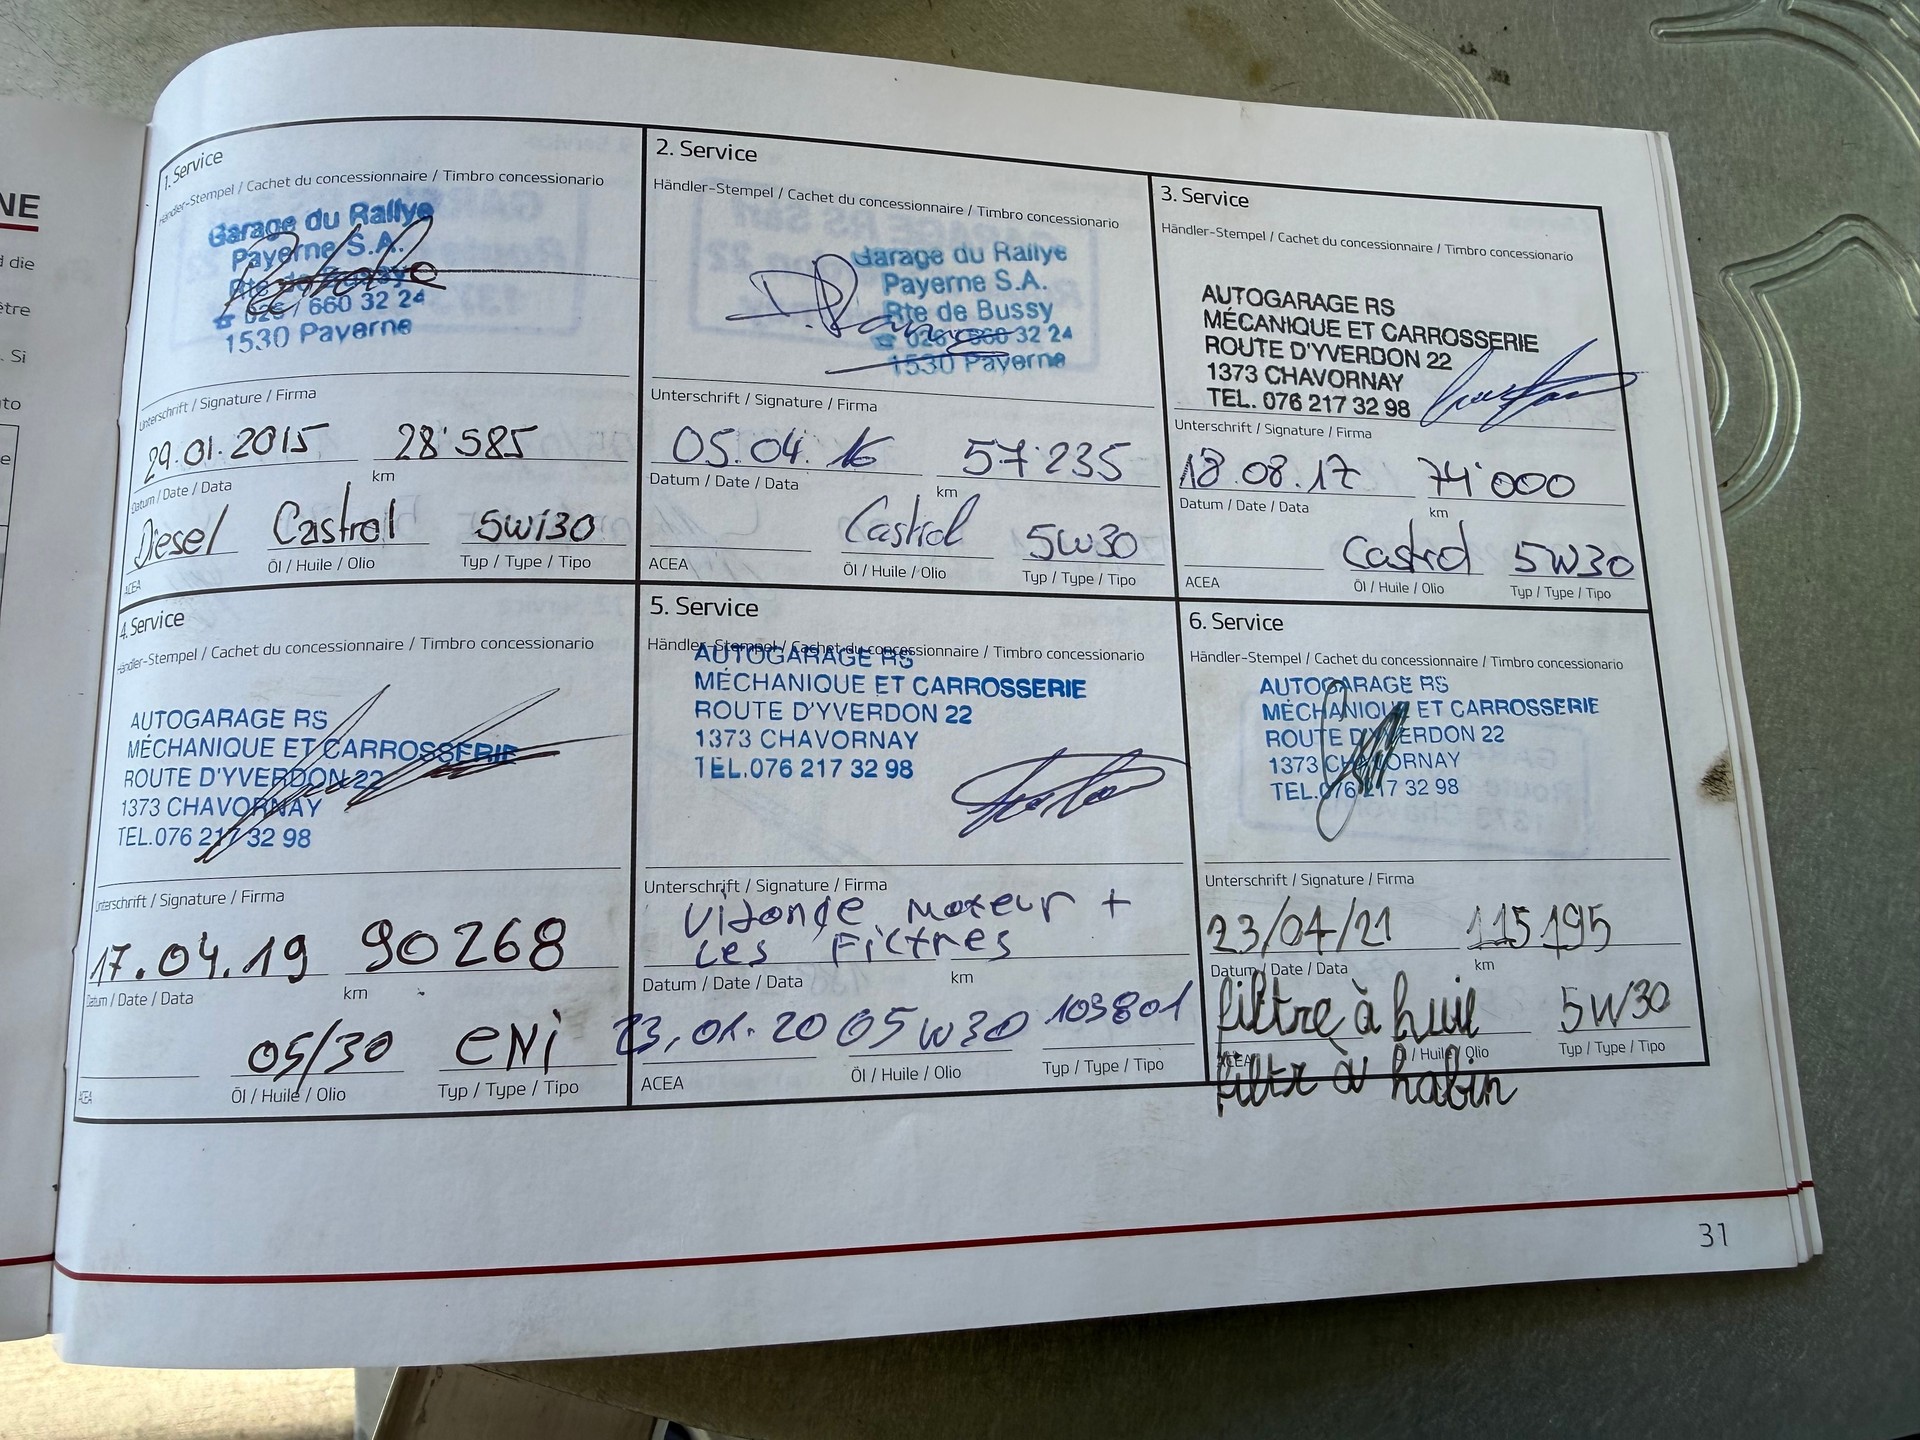 NE
d die
ètre
. Si
to
e
1. Service
Händler-Stempel / Cachet du concessionnaire / Timbro concessionario
Garage du Rallye
Payerne S.A.
Rte de Bussy
☎ 026 / 660 32 24
1530 Payerne
Unterschrift / Signature / Firma
29.01.2015 28'585
Datum / Date / Data km
Diesel Castrol 5wi30
ACEA Öl / Huile / Olio Typ / Type / Tipo
2. Service
Händler-Stempel / Cachet du concessionnaire / Timbro concessionario
Garage du Rallye
Payerne S.A.
Rte de Bussy
☎ 026 660 32 24
1530 Payerne
Unterschrift / Signature / Firma
05.04.16 57'235
Datum / Date / Data km
Castrol 5W30
ACEA Öl / Huile / Olio Typ / Type / Tipo
3. Service
Händler-Stempel / Cachet du concessionnaire / Timbro concessionario
AUTOGARAGE RS
MÉCANIQUE ET CARROSSERIE
ROUTE D'YVERDON 22
1373 CHAVORNAY
TEL. 076 217 32 98
Unterschrift / Signature / Firma
18.08.17 74'000
Datum / Date / Data km
Castrol 5W30
ACEA Öl / Huile / Olio Typ / Type / Tipo
4. Service
Händler-Stempel / Cachet du concessionnaire / Timbro concessionario
AUTOGARAGE RS
MÉCHANIQUE ET CARROSSERIE
ROUTE D'YVERDON 22
1373 CHAVORNAY
TEL.076 217 32 98
Unterschrift / Signature / Firma
17.04.19 90268
Datum / Date / Data km
05/30 eNi
ACEA Öl / Huile / Olio Typ / Type / Tipo
5. Service
Händler-Stempel / Cachet du concessionnaire / Timbro concessionario
AUTOGARAGE RS
MÉCHANIQUE ET CARROSSERIE
ROUTE D'YVERDON 22
1373 CHAVORNAY
TEL.076 217 32 98
Unterschrift / Signature / Firma
Vidonge moteur +
Les Filtres
Datum / Date / Data km
23.01.20 05W30 103801
ACEA Öl / Huile / Olio Typ / Type / Tipo
6. Service
Händler-Stempel / Cachet du concessionnaire / Timbro concessionario
AUTOGARAGE RS
MÉCHANIQUE ET CARROSSERIE
ROUTE D'YVERDON 22
1373 CHAVORNAY
TEL.076 217 32 98
Unterschrift / Signature / Firma
23/04/21 115195
Datum / Date / Data km
filtre à huil 5W30
ACEA Öl / Huile / Olio Typ / Type / Tipo
filtr à habin
31